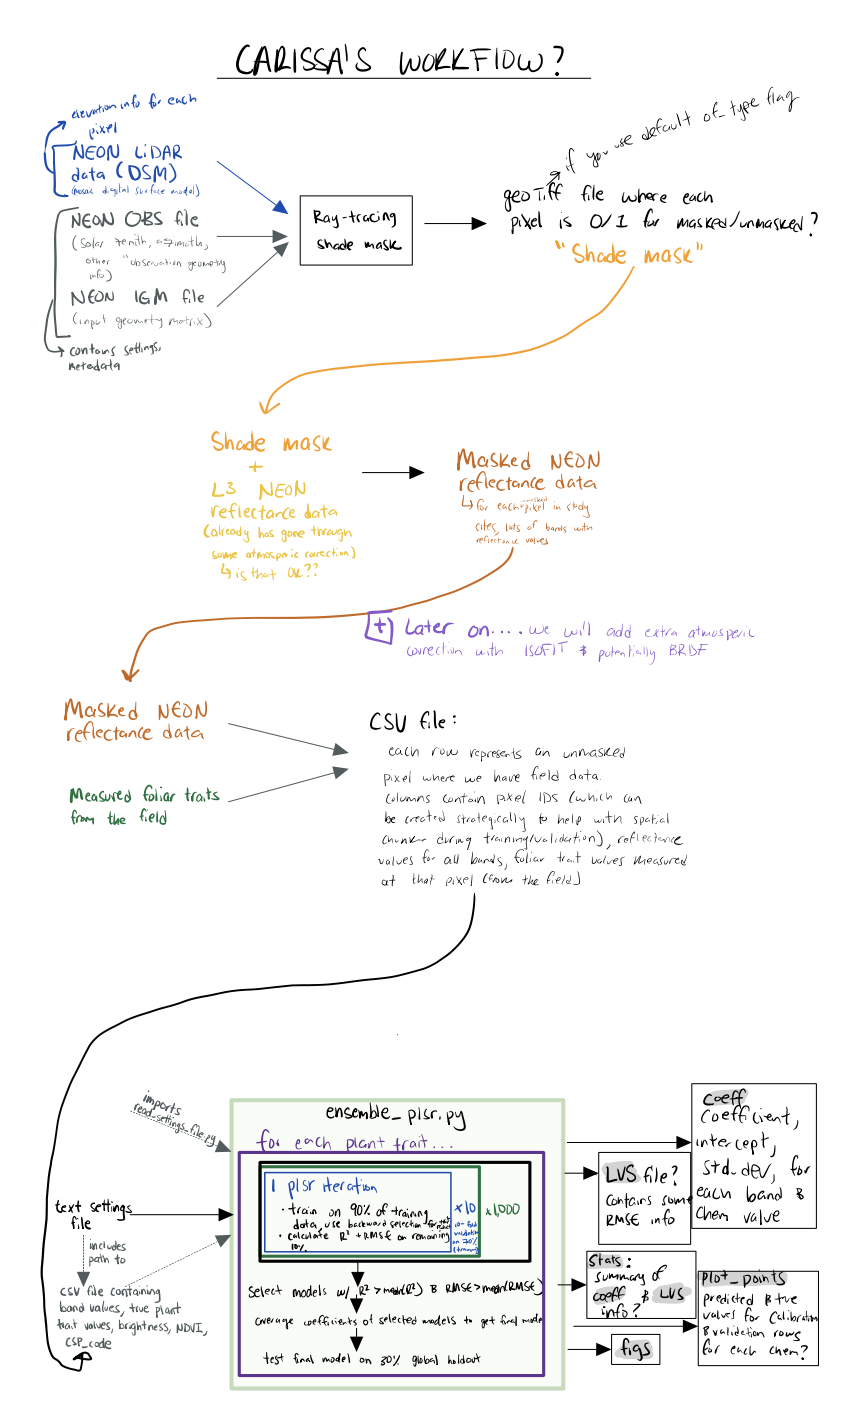 CARISSA'S WORKFLOW?
elevation info for each
pixel
NEON LiDAR
data (DSM)
(mosaic digital surface model)
NEON OBS file
(solar zenith, azimuth,
other "observation geometry
info)
NEON IGM file
(input geometry matrix)
contains settings,
metadata
Ray-tracing
shade mask
if you use default of_type flag
geoTiff file where each
pixel is 0/1 for masked/unmasked?
"Shade mask"
Shade mask
+
L3 NEON
reflectance data
(already has gone through
some atmospheric correction)
is that OK??
Masked NEON
reflectance data
for each unmasked pixel in study
sites, lots of bands with
reflectance values
+ Later on.... we will add extra atmosperic
correction with ISOFIT & potentially BRDF
Masked NEON
reflectance data
Measured foliar traits
from the field
CSV file:
each row represents an unmasked
pixel where we have field data.
Columns contain pixel IDS (which can
be created strategically to help with spatial
chunker during training/validation), reflectance
values for all bands, foliar trait values measured
at that pixel (from the field)
imports
read_settings_file.py
text settings
file
includes
path to
CSV file containing
band values, true plant
trait values, brightness, NDVI,
CSP_code
ensemble_plsr.py
for each plant trait...
1 plsr iteration
• train on 90% of training
data, use backward selection for
• calculate R² + RMSE on remaining
10%
x10
10-fold
validation
on 70%
(training)
x1,000
Select models w/ R² > medn(R²) & RMSE > medn(RMSE)
average coefficients of selected models to get final model
test final model on 30% global holdout
coeff
Coefficient,
intercept,
std_dev, for
each band &
chem value
LVS file?
Contains some
RMSE info
Stats:
summary of
coeff & LVS
info?
plot_points
predicted & true
values for Calibration
& validation rows
for each chem?
figs